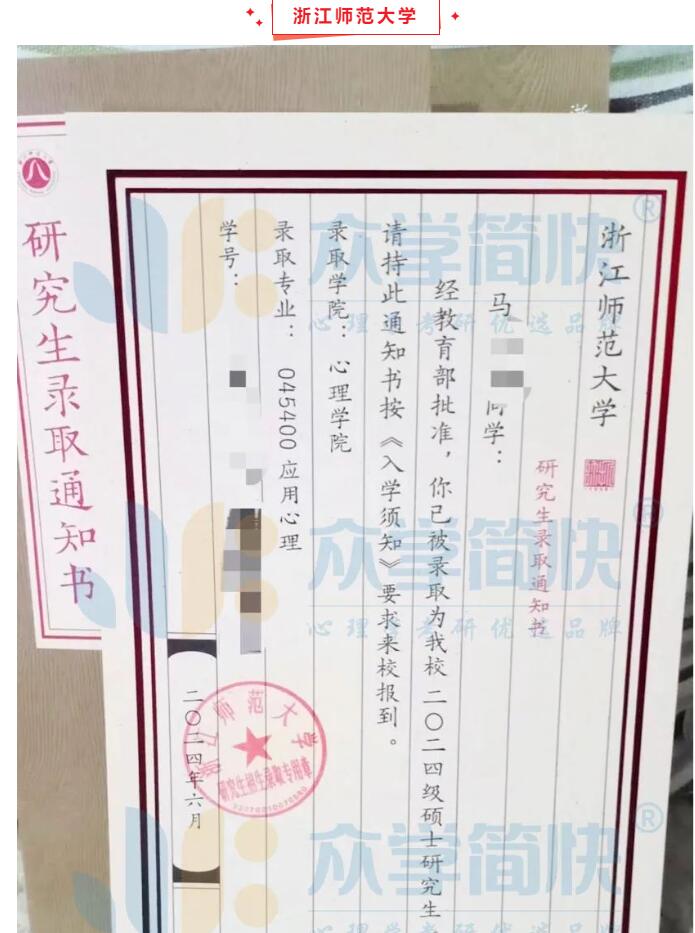 浙江师范大学
研究生录取通知书
浙江师范大学
研究生录取通知书
马
同学：
经教育部批准，你已被录取为我校二〇二四级硕士研究生
请持此通知书按《入学须知》要求来校报到。
录取学院：心理学院
录取专业：045400 应用心理
学号：
二〇二四年六月
浙江师范大学
研究生招生录取专用章
众学简快®
心理学考研优选品牌
众学简快®
心理学考研优选品牌
众学简快®
心理学考研优选品牌